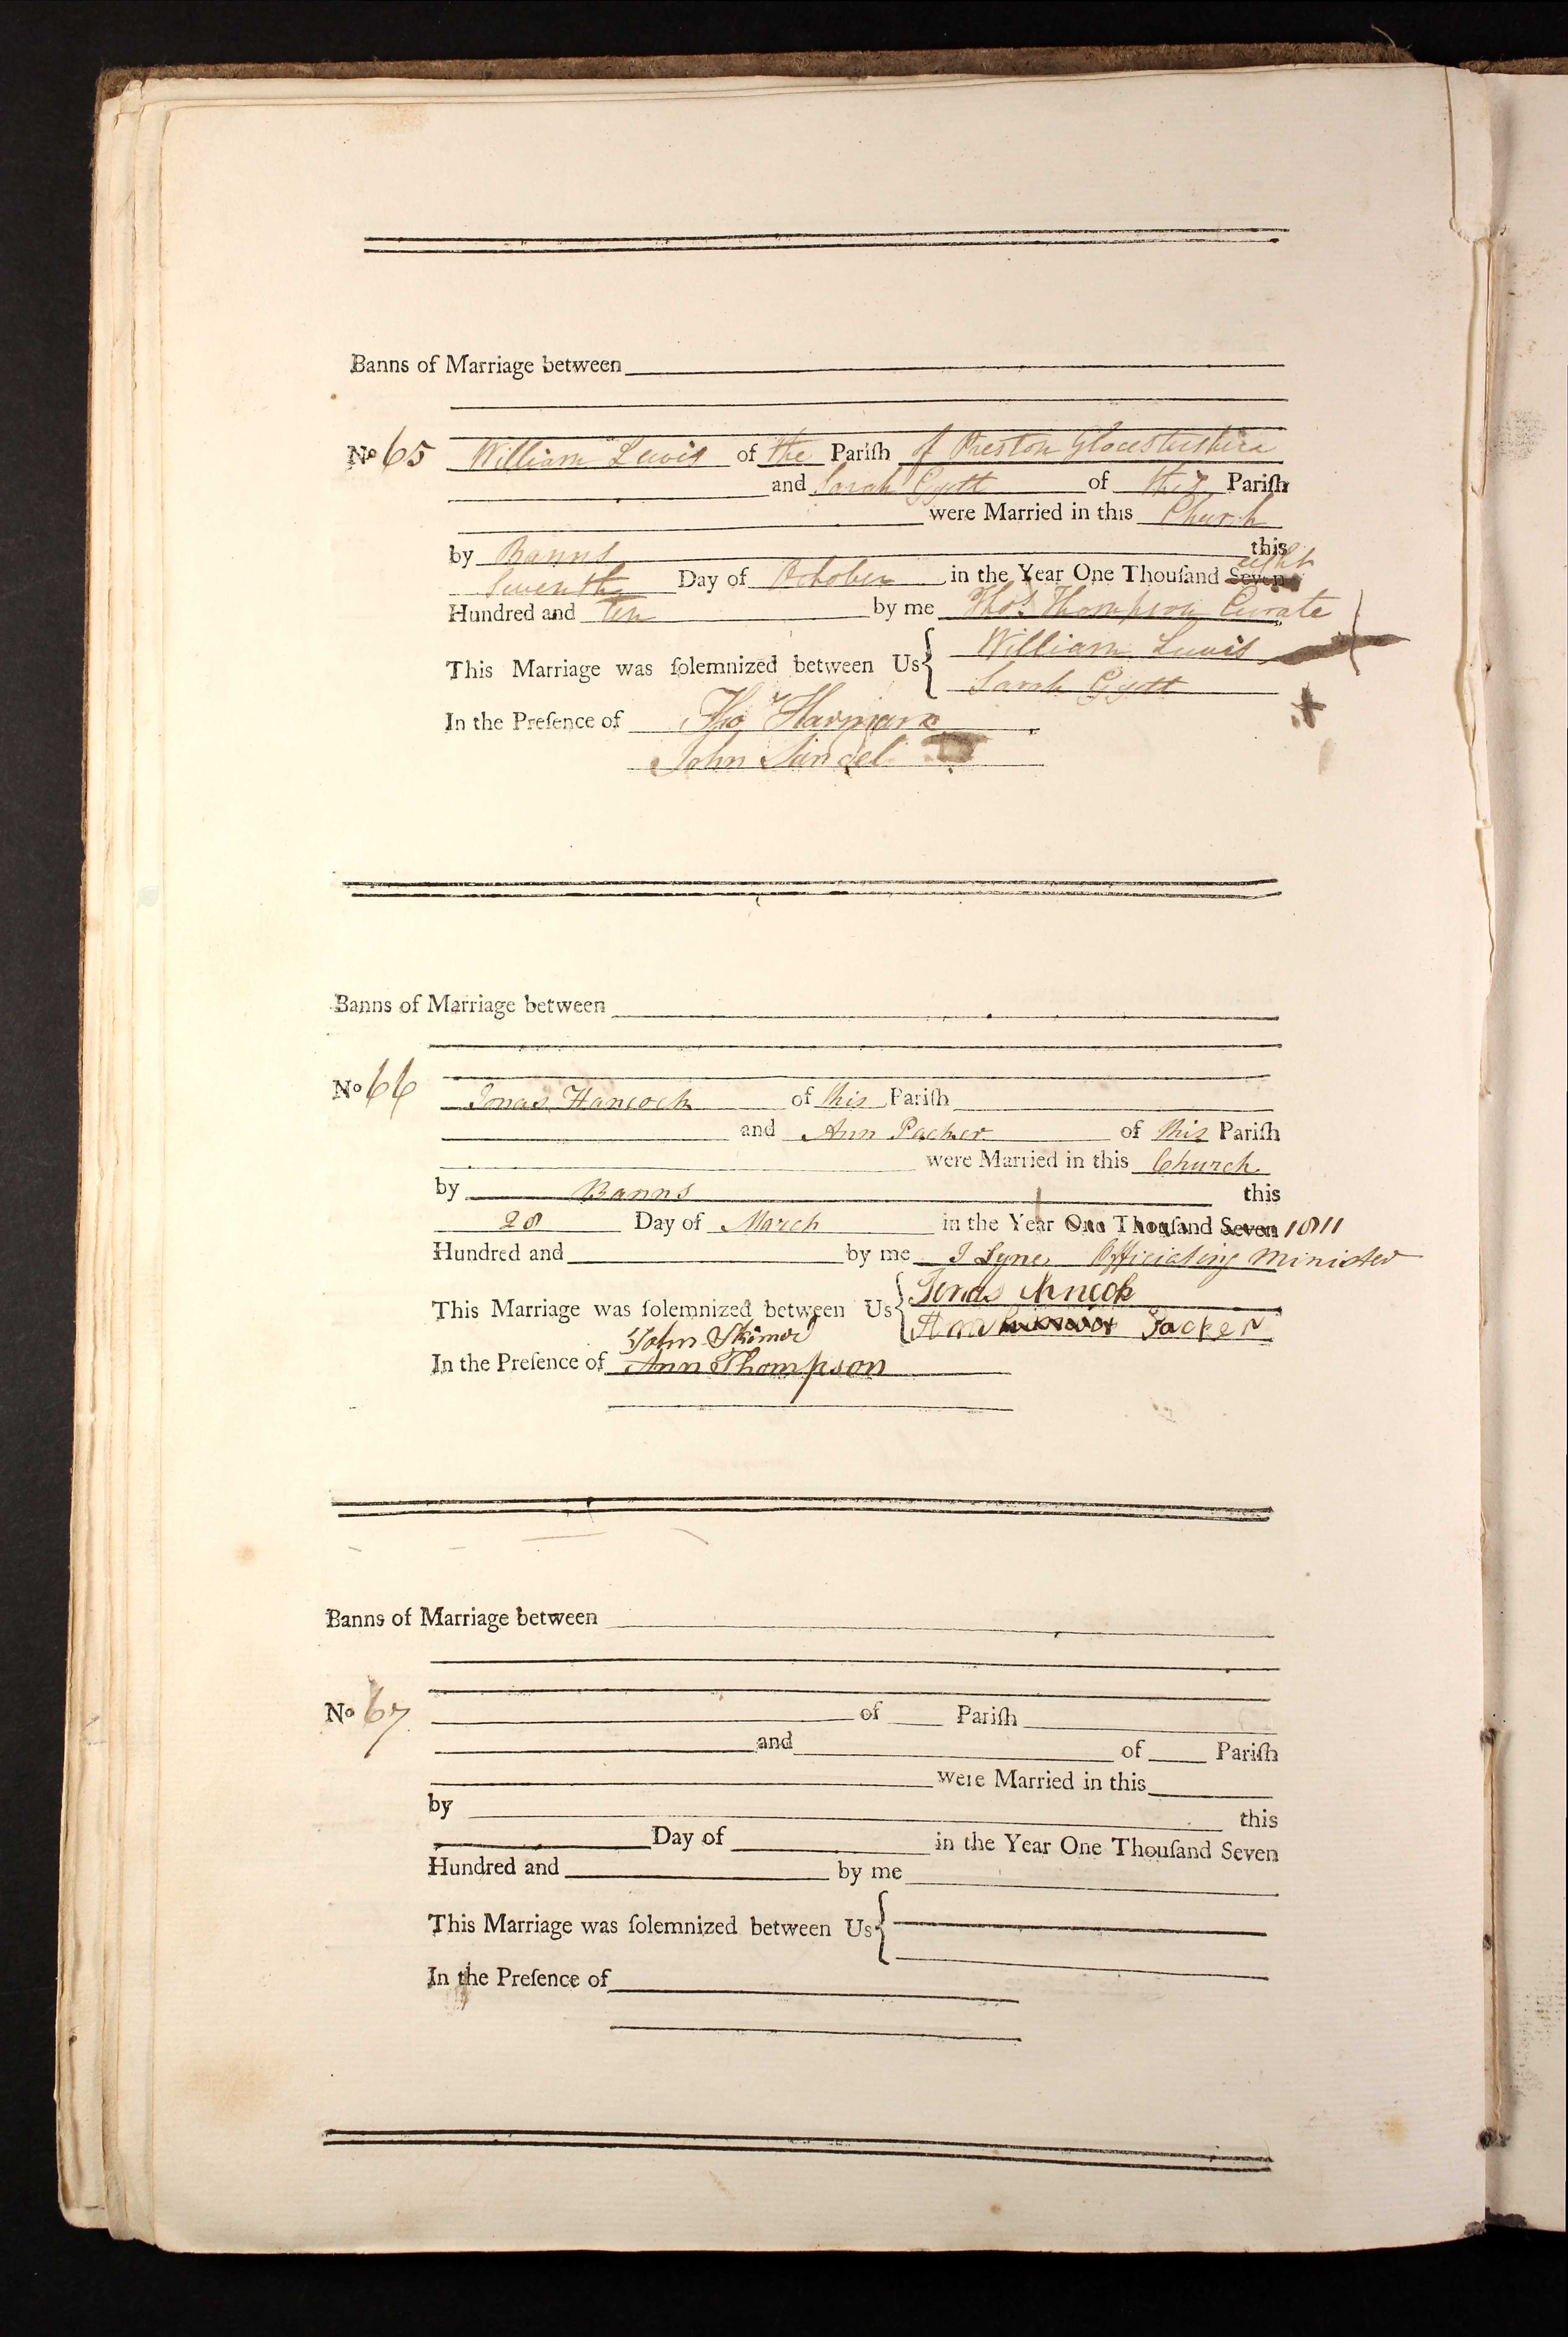 Banns of Marriage between
No 65 William Lewis of the Pariſh of Preston Glocestershire
and Sarah Gyett of this Pariſh
were Married in this Church
by Banns this
eight
Seventh Day of October in the Year One Thouſand Seven
Hundred and ten by me Thos. Thompson Curate
William Lewis
This Marriage was ſolemnized between Us
Sarah Gyett
In the Preſence of Tho Harman
John
Banns of Marriage between
No 66 Jonas Hancock of this Pariſh
and Ann Packer of this Pariſh
were Married in this Church
by Banns this
28 Day of March in the Year One Thouſand Seven 1811
Hundred and by me J Lyne Officiating Minister
Jonas
This Marriage was ſolemnized between Us
Ann Packer
John Skimer
In the Preſence of Ann Thompson
Banns of Marriage between
No 67 of Pariſh
and of Pariſh
were Married in this
by this
Day of in the Year One Thouſand Seven
Hundred and by me
This Marriage was ſolemnized between Us
In the Preſence of